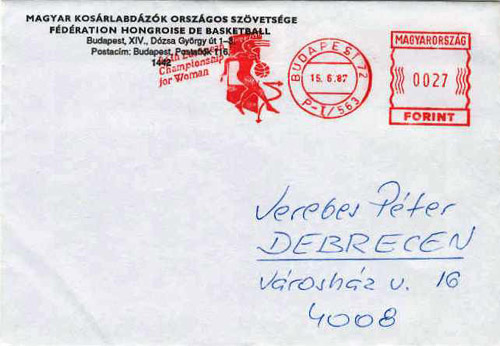 MAGYAR KOSÁRLABDÁZÓK ORSZÁGOS SZÖVETSÉGE
FÉDÉRATION HONGROISE DE BASKETBALL
Budapest, XIV., Dózsa György út 1–3.
Postacím: Budapest, Postafiók 116.
1442
European
Championship
for Woman
BUDAPEST 72
15. 6. 87
P-1/563
MAGYARORSZÁG
0027
FORINT
Verebes Péter
DEBRECEN
Városház u. 16
4008